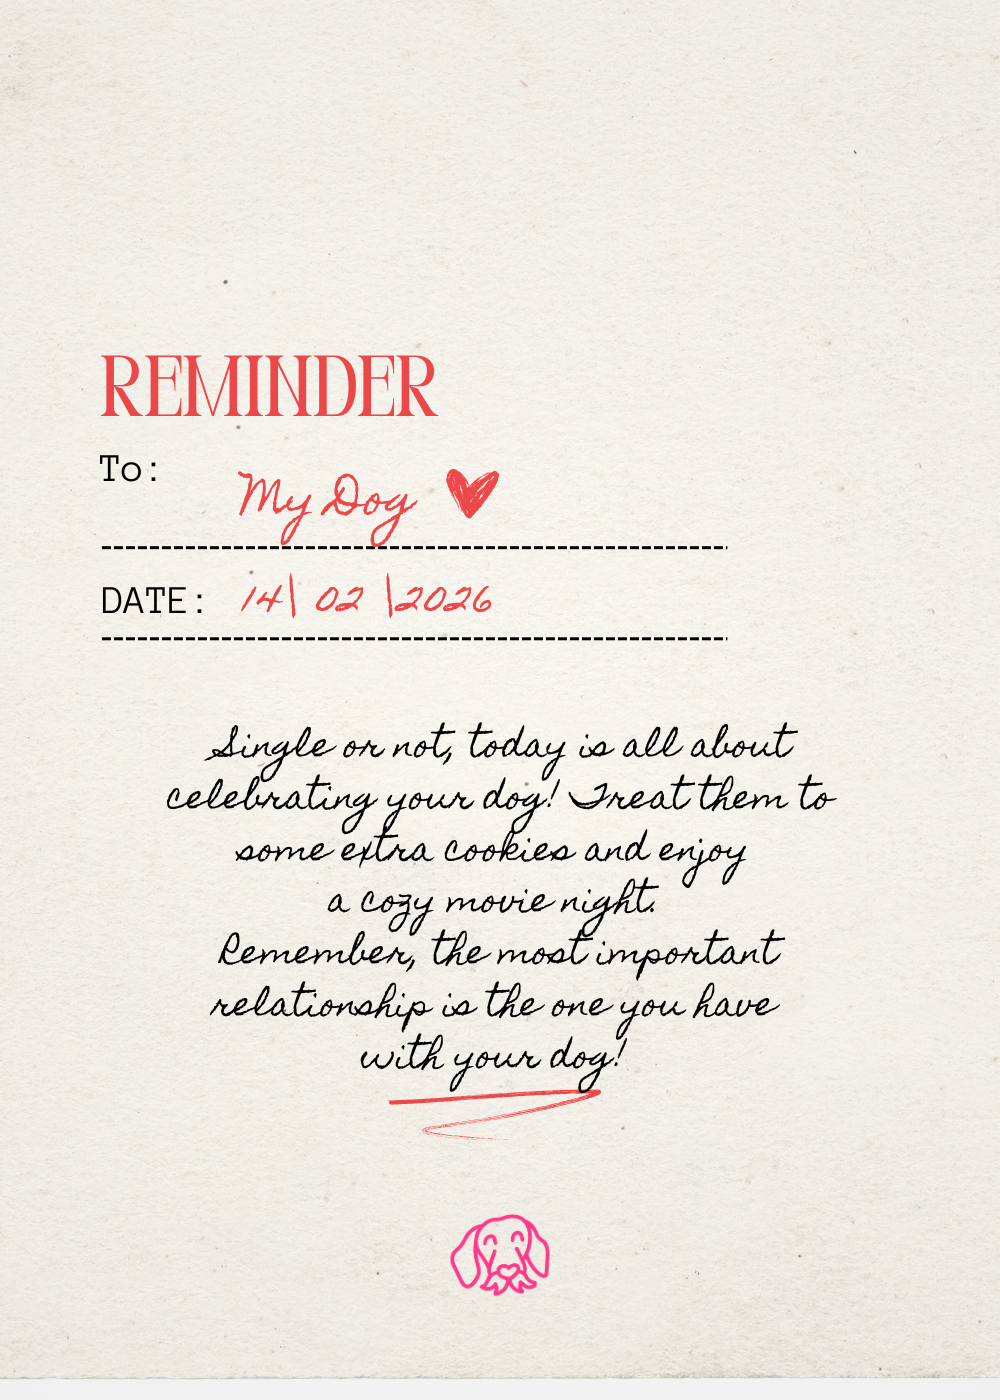 REMINDER
To: My Dog
DATE: 14| 02 |2026
Single or not, today is all about
celebrating your dog! Treat them to
some extra cookies and enjoy
a cozy movie night.
Remember, the most important
relationship is the one you have
with your dog!